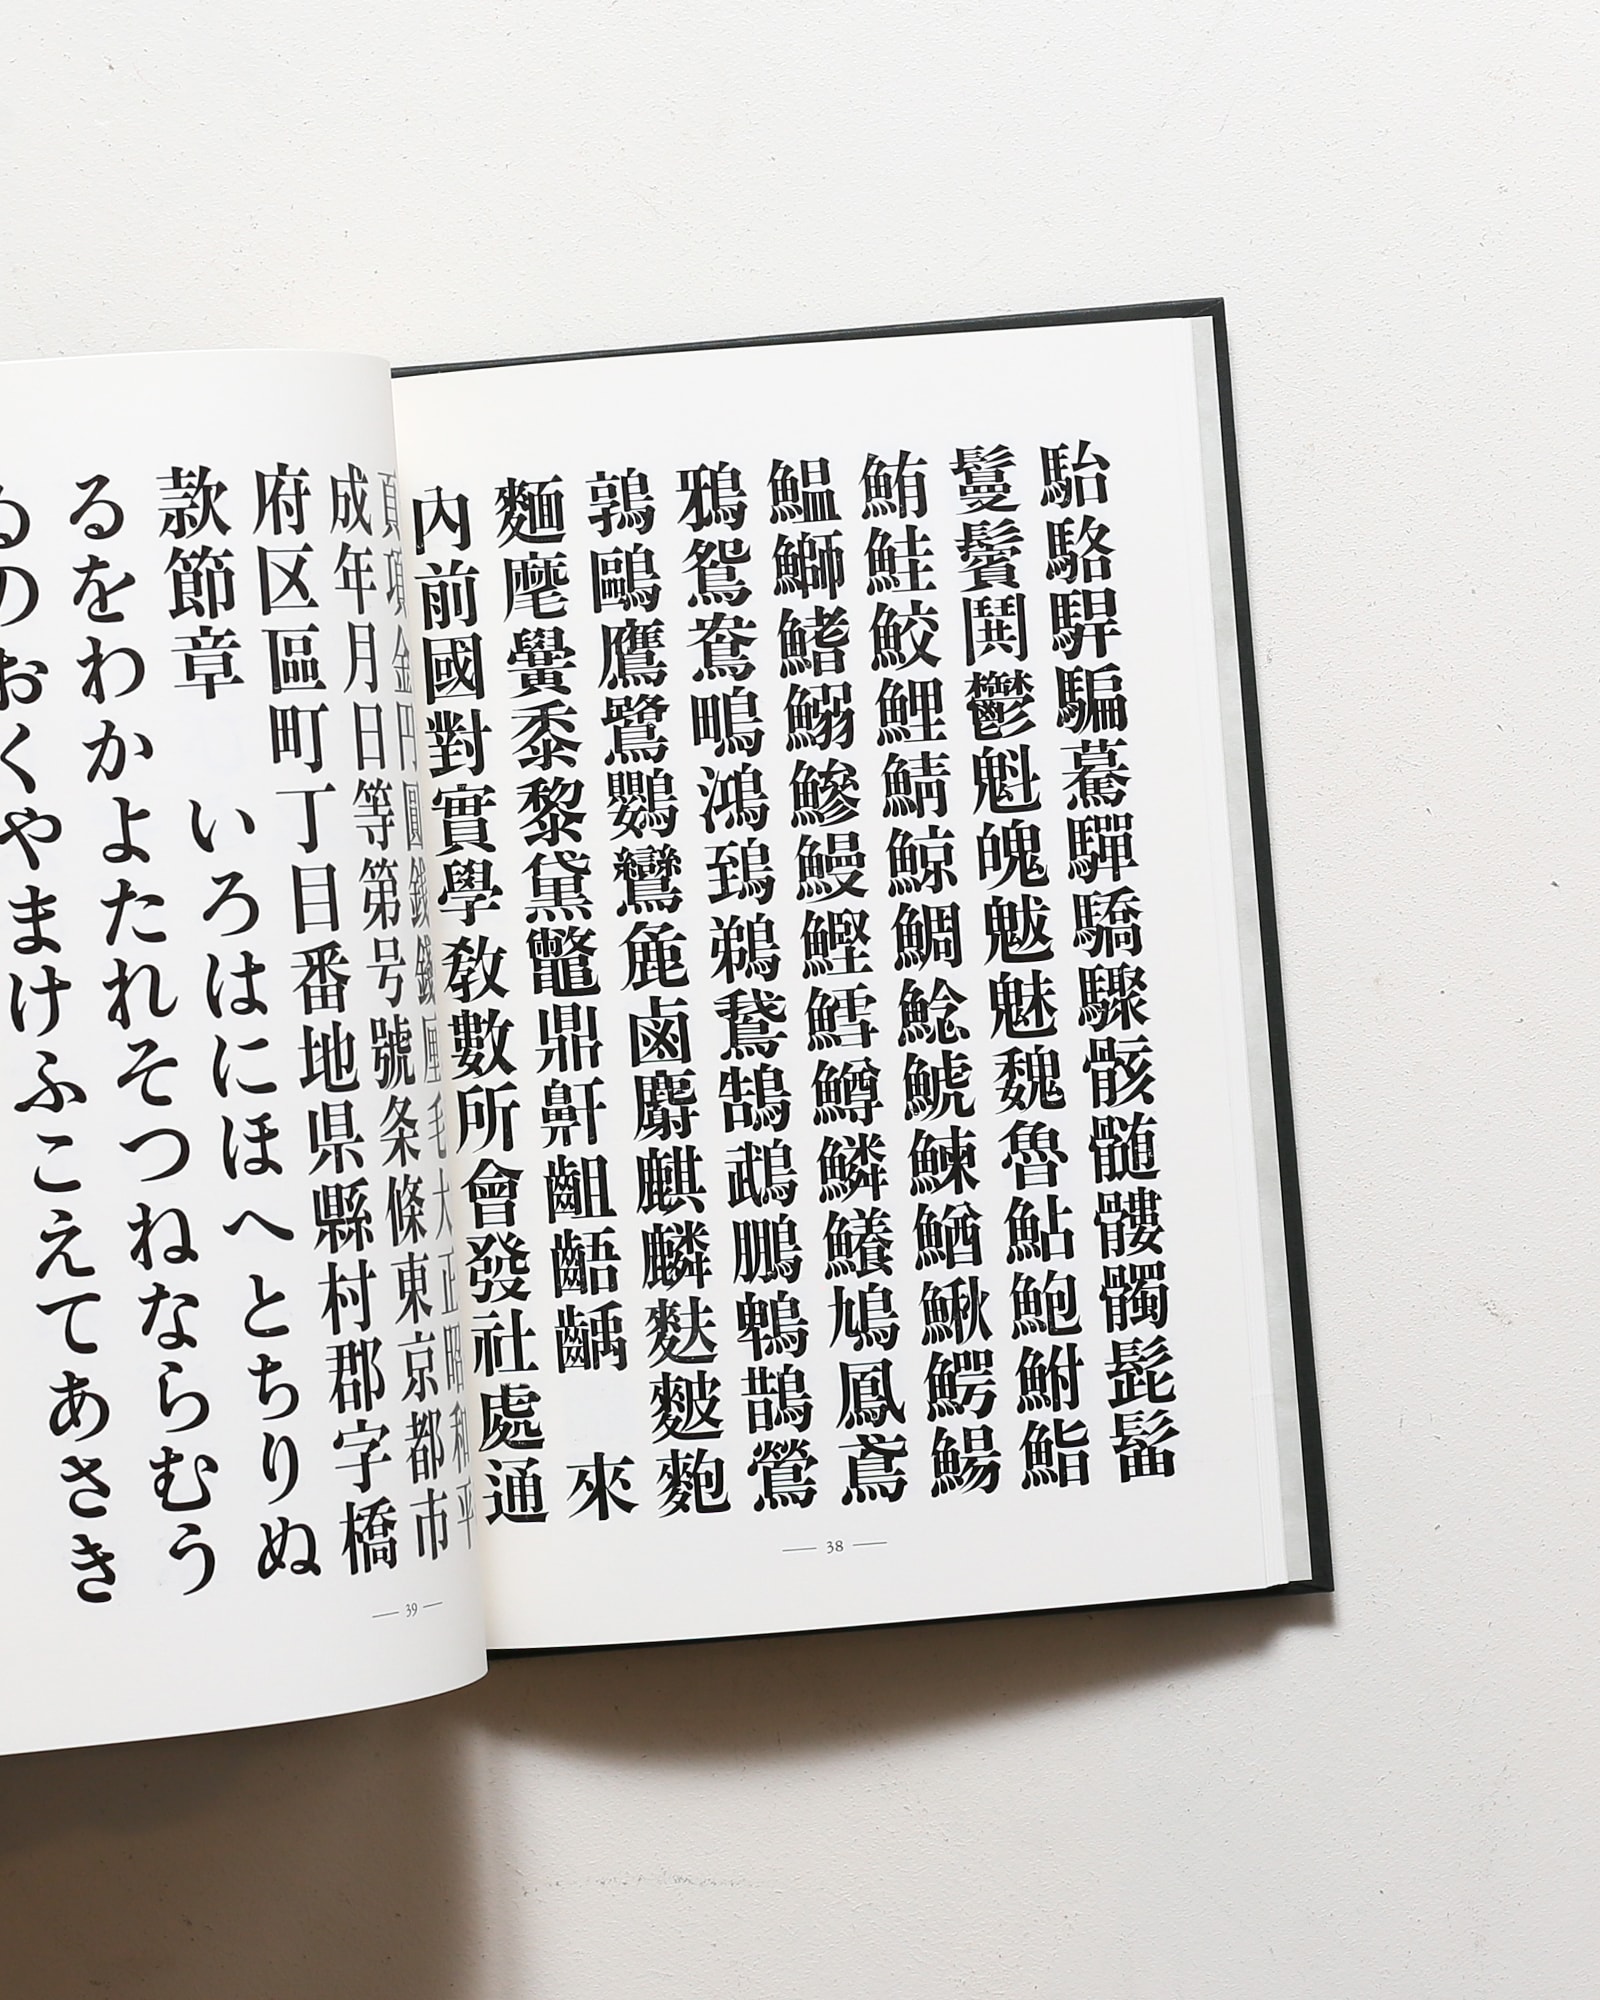 駘駱駻騙驀驒驕驟骸髄髏髑髭髷
鬘鬢鬨鬱魁魄魃魅魏魯鮎鮑鮒鮨
鮪鮭鮫鯉鯖鯨鯛鯰鯱鰊鰌鰍鰐鰑
鰮鰤鰭鰯鰺鰻鰹鱈鱒鱗鱶鳩鳳鳶
鴉鴛鴦鴫鴻鵄鵜鵞鵠鵡鵬鵯鵲鶯
鶉鷗鷹鷺鸚鸞麁鹵麝麒麟麩麬麭
麵麾黌黍黎黛鼈鼎鼾齟齬齲 來
內前國對實學敎數所會發社處通
38
頁項金円圓銭錢厘毛大正昭和平
成年月日等第号號条條東京都市
府区區町丁目番地県縣村郡字橋
款節章 いろはにほへとちりぬ
るをわかよたれそつねならむう
ゐのおくやまけふこえてあさき
39